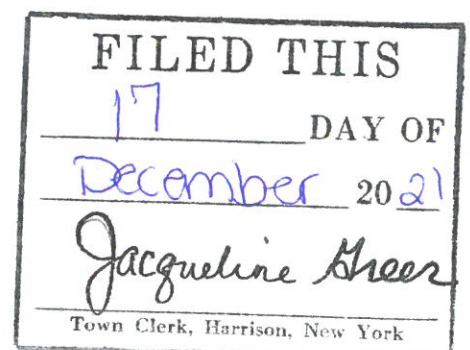 FILED THIS
17 DAY OF
December 20 21
Jacqueline Greer
Town Clerk, Harrison, New York